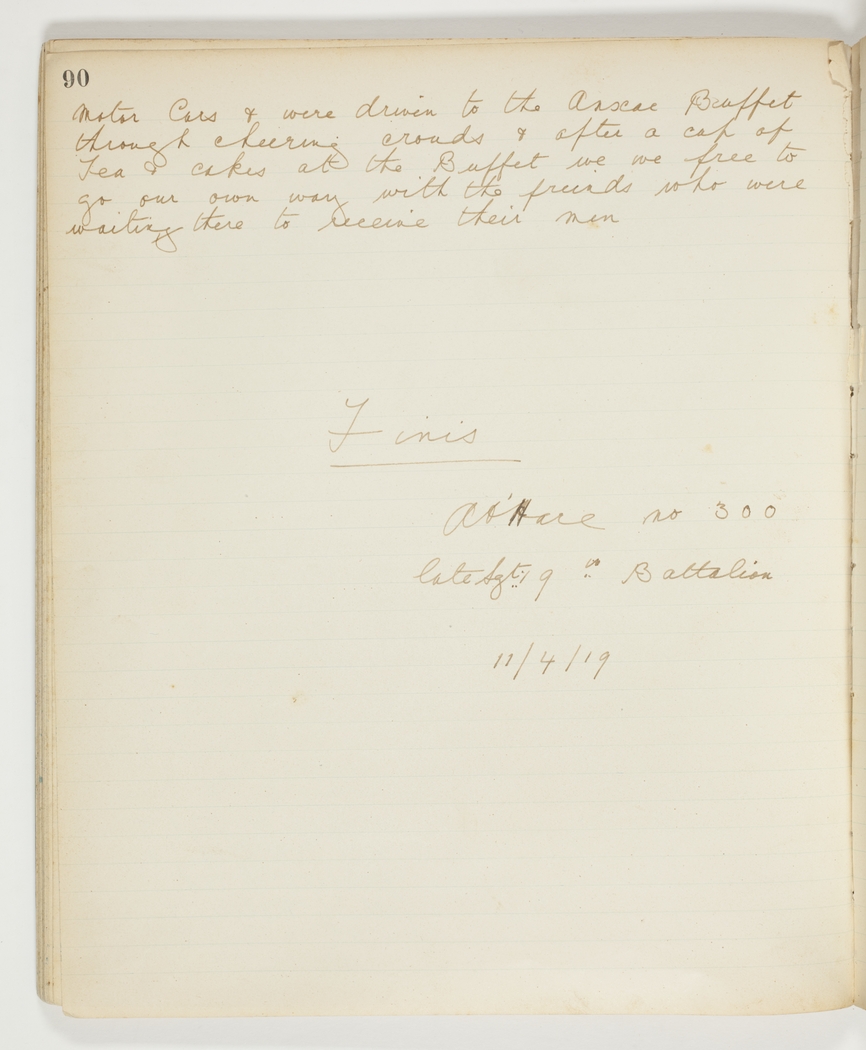 90
Motor Cars & were driven to the Anxcae Buffet
through cheering crouds & after a cap of
Tea & cakes at the Buffet we we free to
go our own way with the freinds who were
waiting there to receive their men
Finis
AO'Hare no 300
late Sgt 19 Battalion
11/4/19